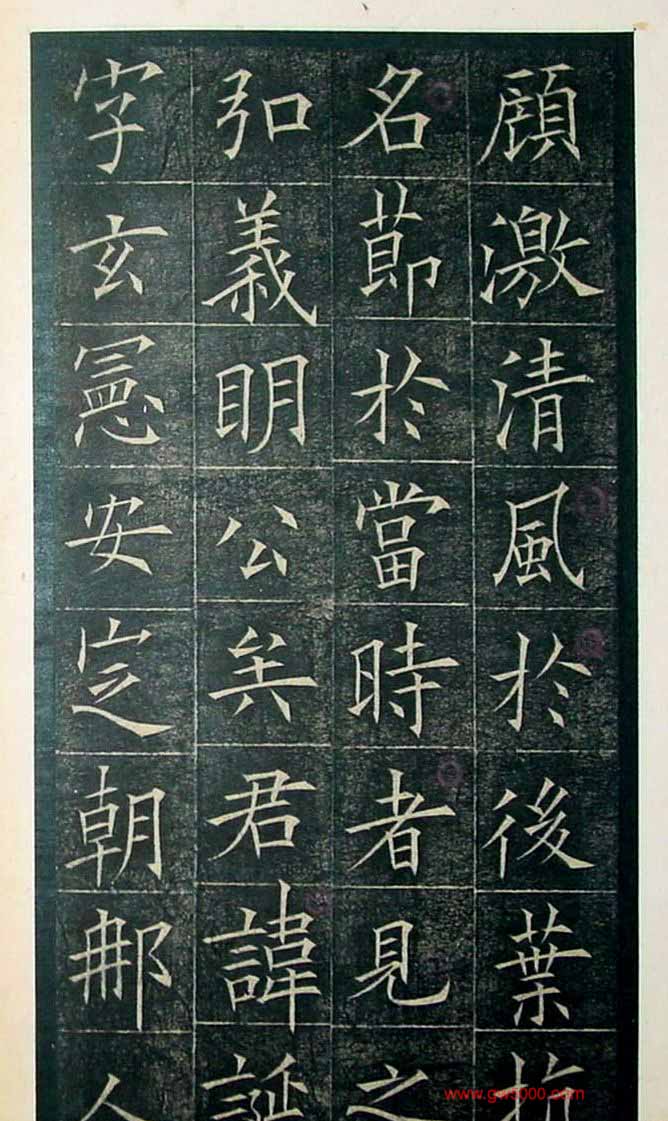 顧激清風於後葉抗
名節於當時者見之
弘義明公矣君諱誕
字玄憲安定朝那人
www.gw5000.com